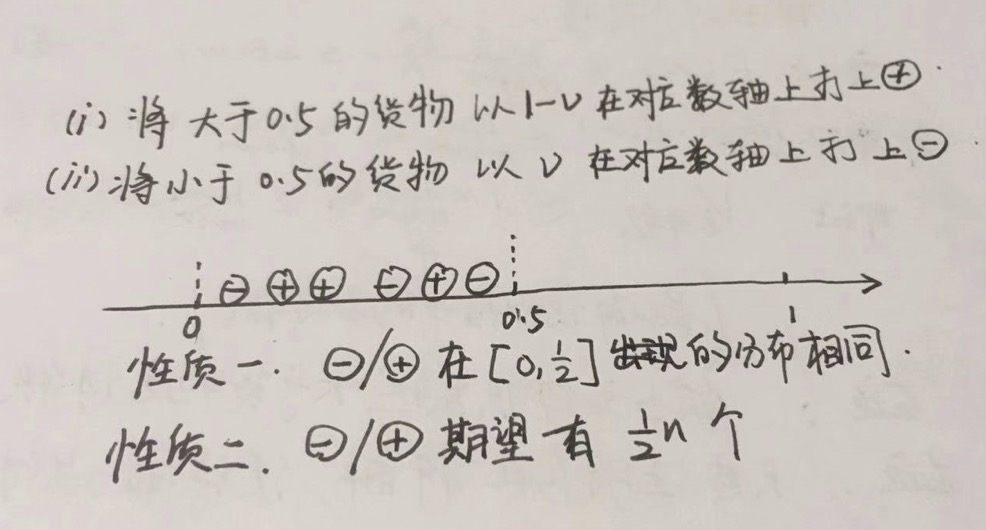 (i) 将 大于0.5的货物 以1-v 在对应数轴上打上⊕.
(ii) 将小于 0.5的货物 以 v 在对应数轴上打上⊖
⊖ ⊕ ⊕ ⊖ ⊕ ⊖
0 0.5 1
性质一. ⊖/⊕ 在 [0,1/2] 出现的分布相同.
性质二. ⊖/⊕ 期望有 1/2 n 个